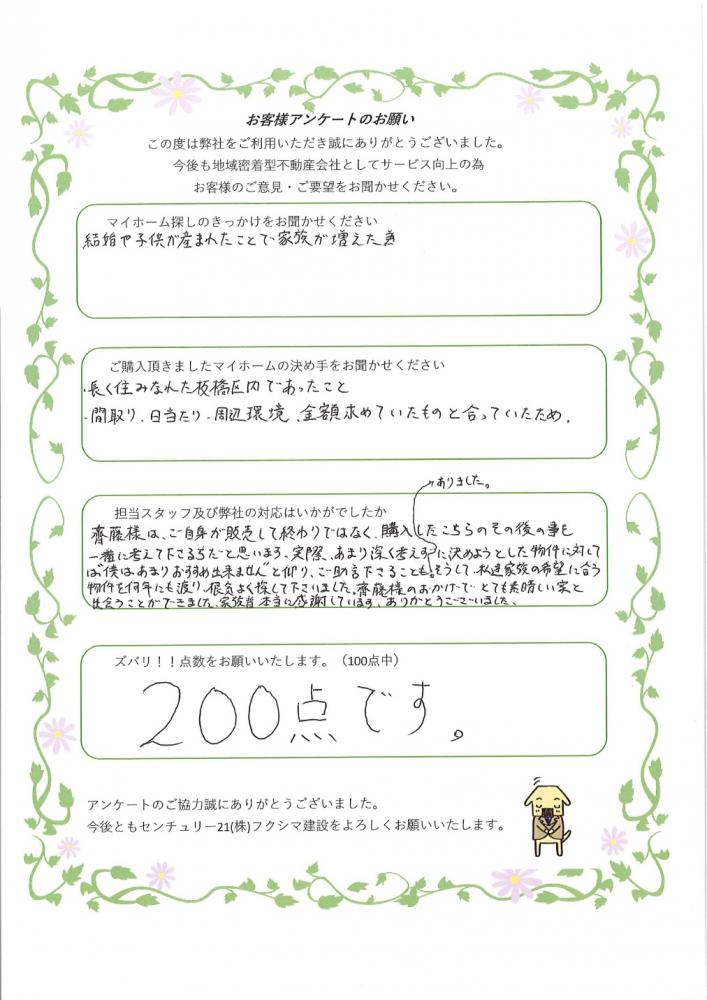 お客様アンケートのお願い
この度は弊社をご利用いただき誠にありがとうございました。
今後も地域密着型不動産会社としてサービス向上の為
お客様のご意見・ご要望をお聞かせください。
マイホーム探しのきっかけをお聞かせください
結婚や子供が産まれたことで家族が増えた為
ご購入頂きましたマイホームの決め手をお聞かせください
・長く住みなれた板橋区内であったこと
・間取り、日当たり、周辺環境、金額求めていたものと合っていたため。
ありました。
担当スタッフ及び弊社の対応はいかがでしたか
齊藤様は、ご自身が販売して終わりではなく、購入したこちらのその後の事も
一番に考えて下さる方だと思います。実際、あまり深く考えずに決めようとした物件に対して
は"僕はあまりおすすめ出来ません"と仰り、ご助言下さることも。そうして、私達家族の希望に合う
物件を何年にも渡り、根気よく探して下さいました。齊藤様のおかげで とても素晴しい家と
出会うことができました。家族皆 本当に感謝しています。ありがとうございました。
ズバリ！！点数をお願いいたします。（100点中）
200点です。
アンケートのご協力誠にありがとうございました。
今後ともセンチュリー21(株)フクシマ建設をよろしくお願いいたします。